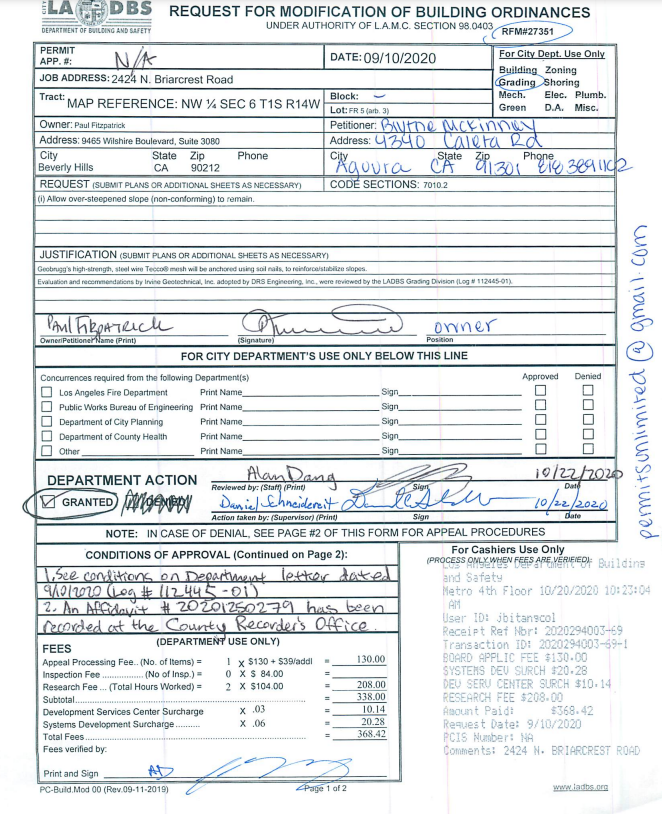 LA DBS
DEPARTMENT OF BUILDING AND SAFETY
REQUEST FOR MODIFICATION OF BUILDING ORDINANCES
UNDER AUTHORITY OF L.A.M.C. SECTION 98.0403
RFM#27351
PERMIT
APP. #: N/A
DATE: 09/10/2020
For City Dept. Use Only
Building Zoning
Grading Shoring
Mech. Elec. Plumb.
Green D.A. Misc.
JOB ADDRESS: 2424 N. Briarcrest Road
Tract: MAP REFERENCE: NW ¼ SEC 6 T1S R14W
Block: –
Lot: FR 5 (arb. 3)
Owner: Paul Fitzpatrick
Petitioner: Blythe McKinney
Address: 9465 Wilshire Boulevard, Suite 3080
Address: 4340 Caleta Rd
City State Zip Phone
Beverly Hills CA 90212
City State Zip Phone
Agoura CA 91301
REQUEST (SUBMIT PLANS OR ADDITIONAL SHEETS AS NECESSARY)
CODE SECTIONS: 7010.2
(i) Allow over-steepened slope (non-conforming) to remain.
JUSTIFICATION (SUBMIT PLANS OR ADDITIONAL SHEETS AS NECESSARY)
Geobrugg's high-strength, steel wire Tecco® mesh will be anchored using soil nails, to reinforce/stabilize slopes.
Evaluation and recommendations by Irvine Geotechnical, Inc. adopted by DRS Engineering, Inc., were reviewed by the LADBS Grading Division (Log # 112445-01).
PAUL FITZPATRICK owner
Owner/Petitioner Name (Print) (Signature) Position
permitsunlimited@gmail.com
FOR CITY DEPARTMENT'S USE ONLY BELOW THIS LINE
Concurrences required from the following Department(s)
Approved Denied
Los Angeles Fire Department Print Name Sign
Public Works Bureau of Engineering Print Name Sign
Department of City Planning Print Name Sign
Department of County Health Print Name Sign
Other Print Name Sign
DEPARTMENT ACTION
Alan Dang 10/22/2020
Reviewed by: (Staff) (Print) Sign Date
GRANTED
Daniel Schneidereit 10/22/2020
Action taken by: (Supervisor) (Print) Sign Date
NOTE: IN CASE OF DENIAL, SEE PAGE #2 OF THIS FORM FOR APPEAL PROCEDURES
CONDITIONS OF APPROVAL (Continued on Page 2):
1. See conditions on Department letter dated
9/10/2020 (Log # 112445-01)
2. An Affidavit # 20201250279 has been
recorded at the County Recorder's Office.
(DEPARTMENT USE ONLY)
FEES
Appeal Processing Fee.. (No. of Items) = 1 X $130 + $39/addl = 130.00
Inspection Fee ................. (No of Insp.) = 0 X $ 84.00 =
Research Fee ... (Total Hours Worked) = 2 X $104.00 = 208.00
Subtotal = 338.00
Development Services Center Surcharge X .03 = 10.14
Systems Development Surcharge X .06 = 20.28
Total Fees = 368.42
Fees verified by:
Print and Sign AD
PC-Build.Mod 00 (Rev.09-11-2019)
Page 1 of 2
For Cashiers Use Only
(PROCESS ONLY WHEN FEES ARE VERIFIED)
Los Angeles Department of Building
and Safety
Metro 4th Floor 10/20/2020 10:23:04
AM
User ID: jbitangcol
Receipt Ref Nbr: 2020294003-69
Transaction ID: 2020294003-69-1
BOARD APPLIC FEE $130.00
SYSTEMS DEV SURCH $20.28
DEV SERV CENTER SURCH $10.14
RESEARCH FEE $208.00
Amount Paid: $368.42
Request Date: 9/10/2020
PCIS Number: NA
Comments: 2424 N. BRIARCREST ROAD
www.ladbs.org